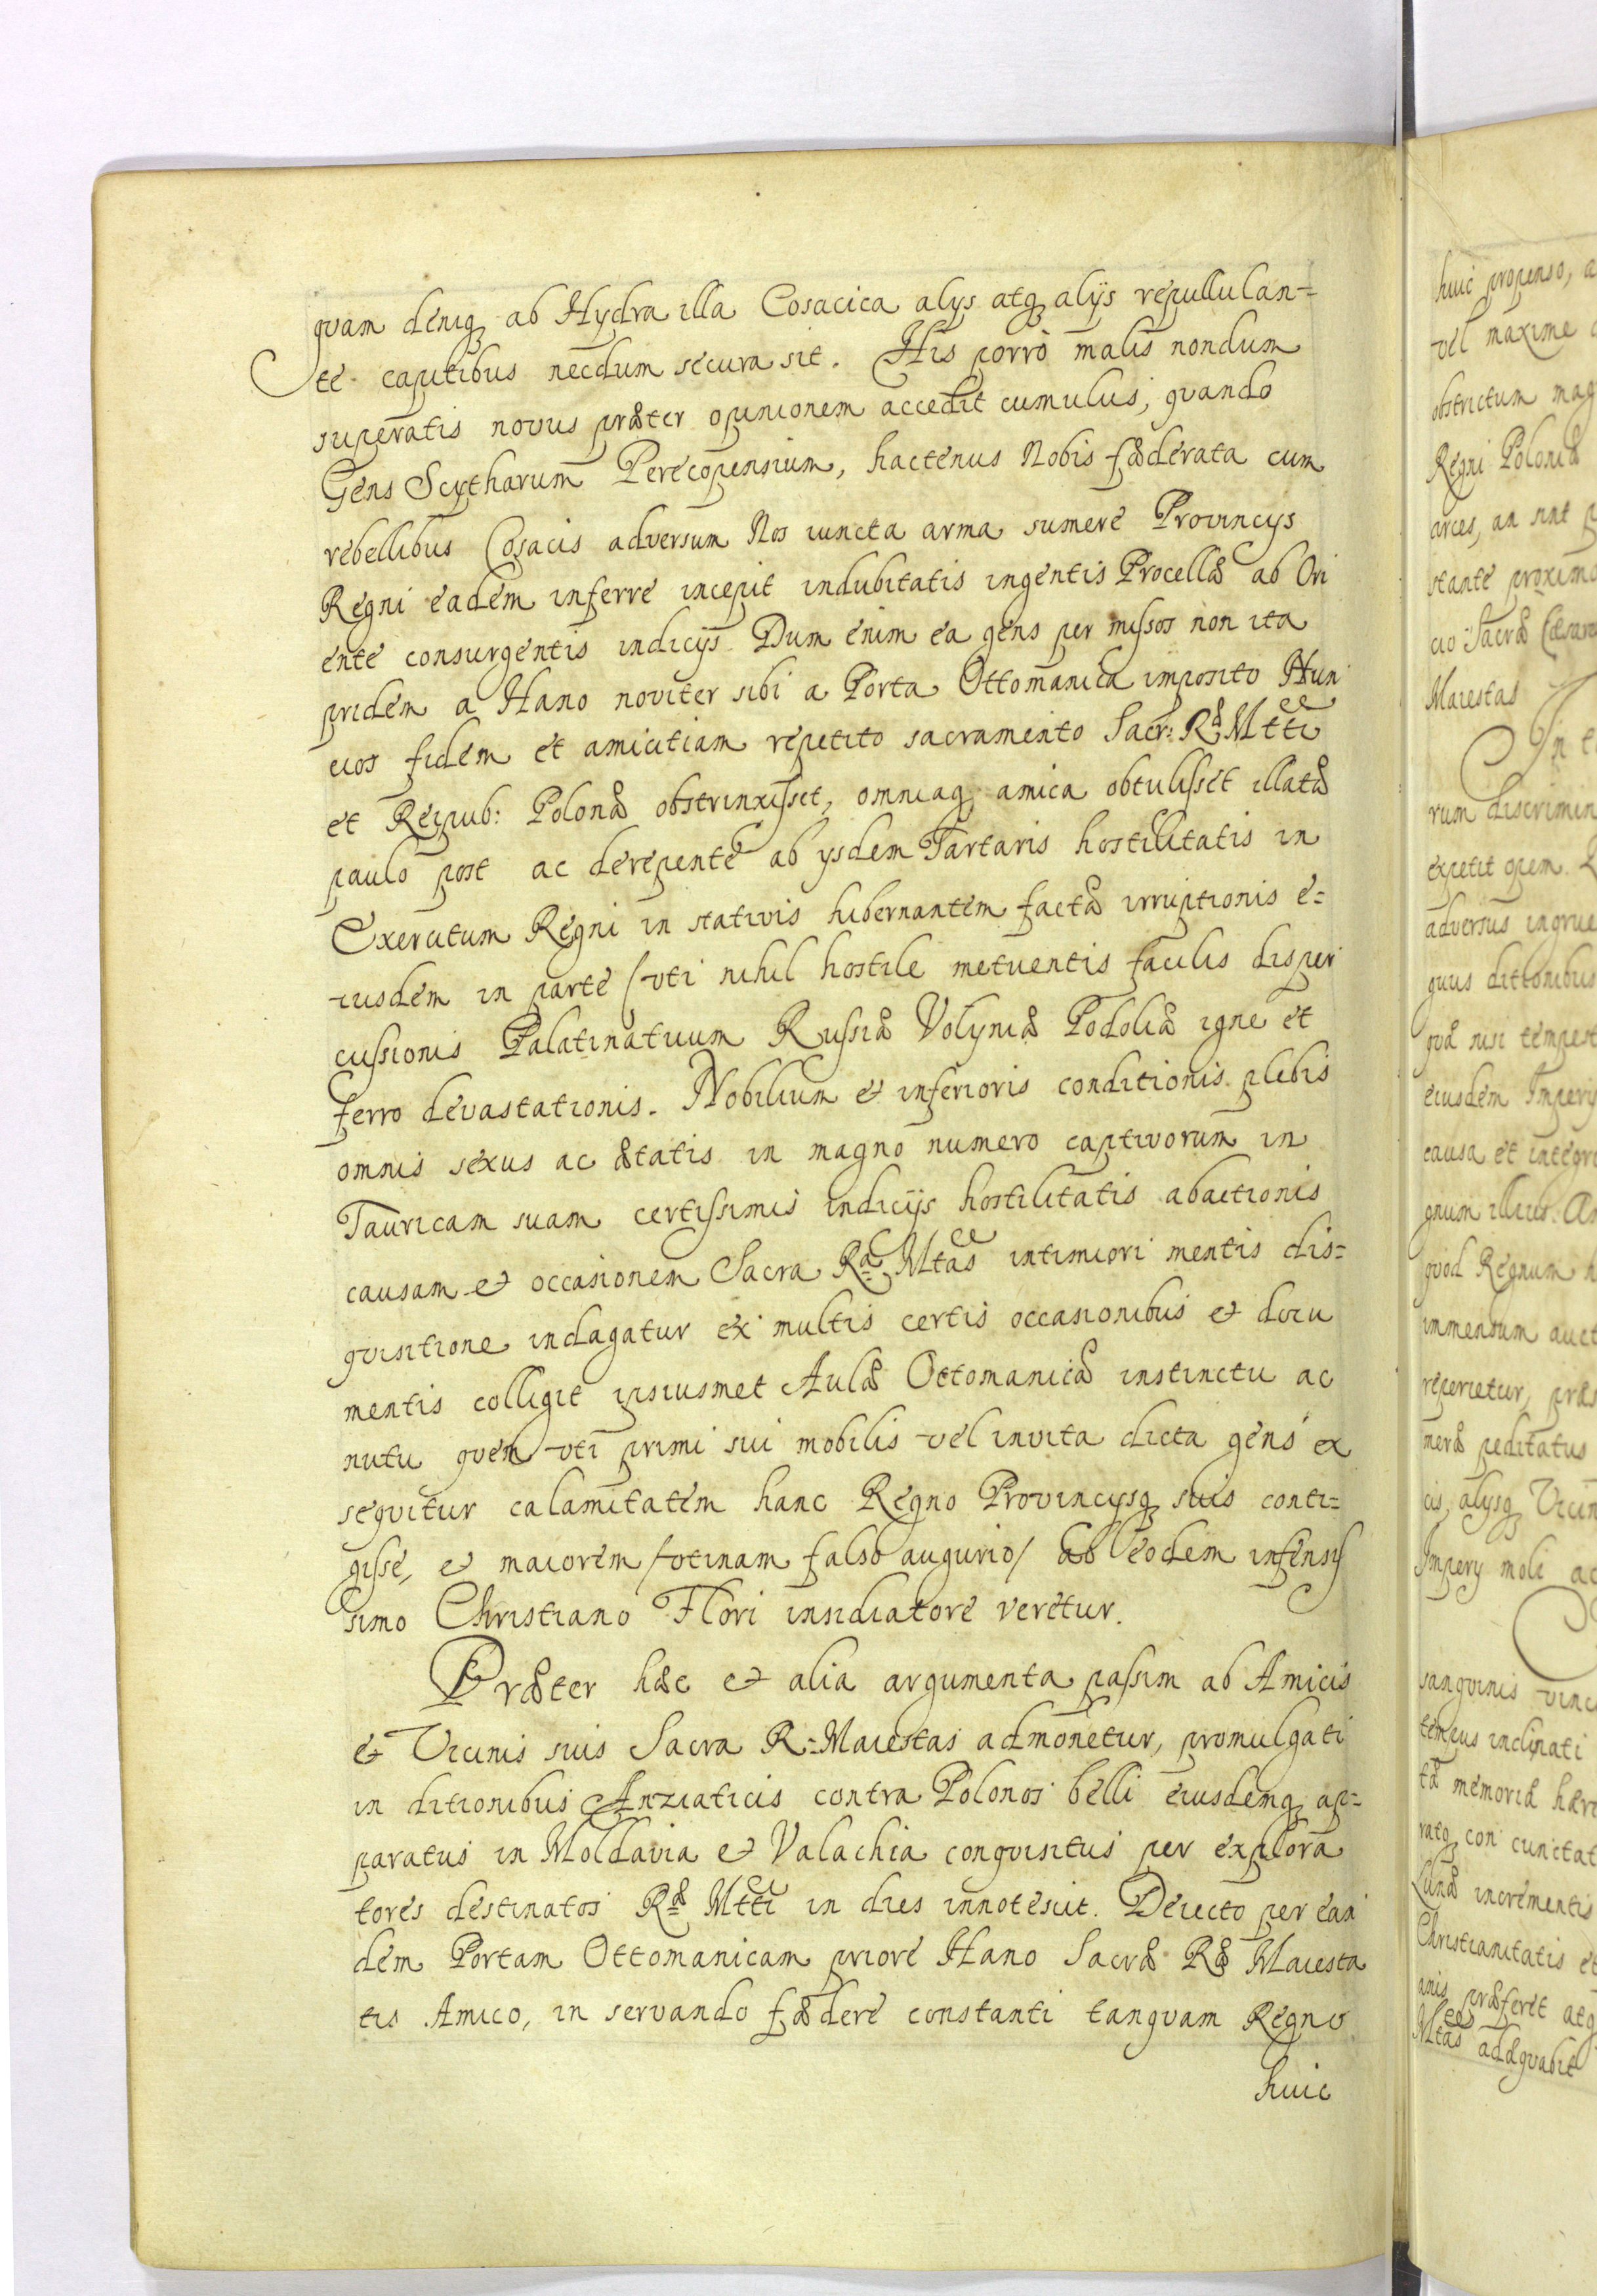 quam deniq; ab Hydra illa Cosacica alys atq; alijs repullulan=
te capitibus necdum secura sit. His porrò malis nondum
superatis novus præter opinionem accedit cumulus, quando
Gens Scytharum Perecopensium, hactenus Nobis fæderata cum
rebellibus Cosacis adversum Nos iuncta arma sumere Provincys
Regni eadem inferre incepit indubitatis ingentis Procellæ ab Ori
ente consurgentis indicijs. Dum enim ea gens per missos non ita
pridem a Hano noviter sibi a Porta Ottomanica imposito Nun
cios fidem et amicitiam repetito sacramento Sacr: Ræ Mtti
et Reipub: Polonæ obstrinxisset, omniaq; amica obtulisset illatæ
paulo post ac derepente ab ysdem Tartaris hostilitatis in
Exercitum Regni in stativis hibernantem factæ irruptionis e=
iusdem in parte /vti nihil hostile metuentis facilis disper
cussionis Palatinatuum Russiæ Volyniæ Podoliæ igne et
ferro devastationis. Nobilium et inferioris conditionis plebis
omnis sexus ac ætatis in magno numero captivorum in
Tauricam suam certissimis indicijs hostilitatis abactionis
causam et occasionem Sacra Ra Mtas intimiori mentis dis=
quisitione indagatur ex multis certis occasionibus et docu
mentis colligit ipsiusmet Aulæ Ottomanicæ instinctu ac
nutu quem vti primi sui mobilis vel invita dicta gens ex
sequitur calamitatem hanc Regno Provincysq; suis conti=
gisse, et maiorem /vtinam falso augurio/ ab eodem infensis
simo Christiano Flori insidiatore veretur.
Præter hæc et alia argumenta passim ab Amicis
et Vicinis suis Sacra R: Maiestas admonetur, promulgati
in ditionibus Anziaticis contra Polonos belli eiusdemq; ap=
paratus in Moldavia et Valachia conquisitus per explora
tores destinatos Ræ Mtti in dies innotescit. Deiecto per ean
dem Portam Ottomanicam priore Hano Sacræ Ræ Maiesta
tis Amico, in servando fædere constanti tanquam Regno
huic
huic propenso, a
vel maxime
obstrictum mag
Regni Poloniæ
arces, an sint
stante proximo
cio Sacræ Cæsarea
Maiestas
In
rum discrimin
expetit opem.
adversus ingrue
quus ditionibus
quæ nisi tempest
eiusdem Impery
causa et integri
gnum illius.
quod Regnum h
immensum auct
reperietur, præs
meræ peditatus
cis, alysq; Vicin
Impery moli ac
sanguinis vinc
tempus inclinati
tæ memoriæ hære
ratq; con cunctat
Lunæ incrementis
Christianitatis et
anis præferet atq;
Mtas adæquabit